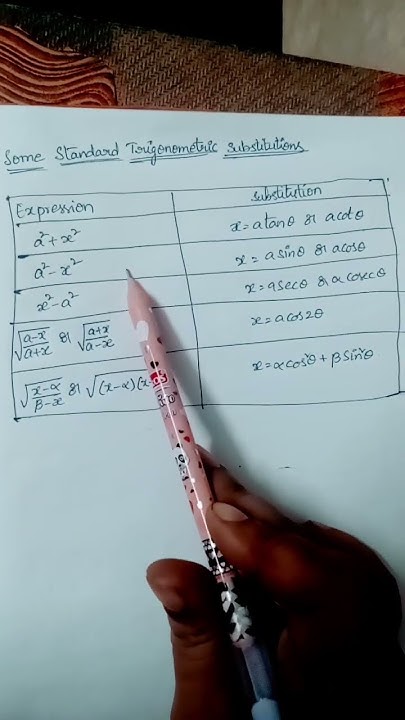 Some Standard Trigonometric substitutions
Expression substitution
a²+x² x=atanθ or acotθ
a²-x² x= asinθ or acosθ
x²-a² x=asecθ or acosecθ
√(a-x/a+x) or √(a+x/a-x) x=acos2θ
√(x-α/β-x) or √(x-α)(x- x=αcos²θ+βsin²θ